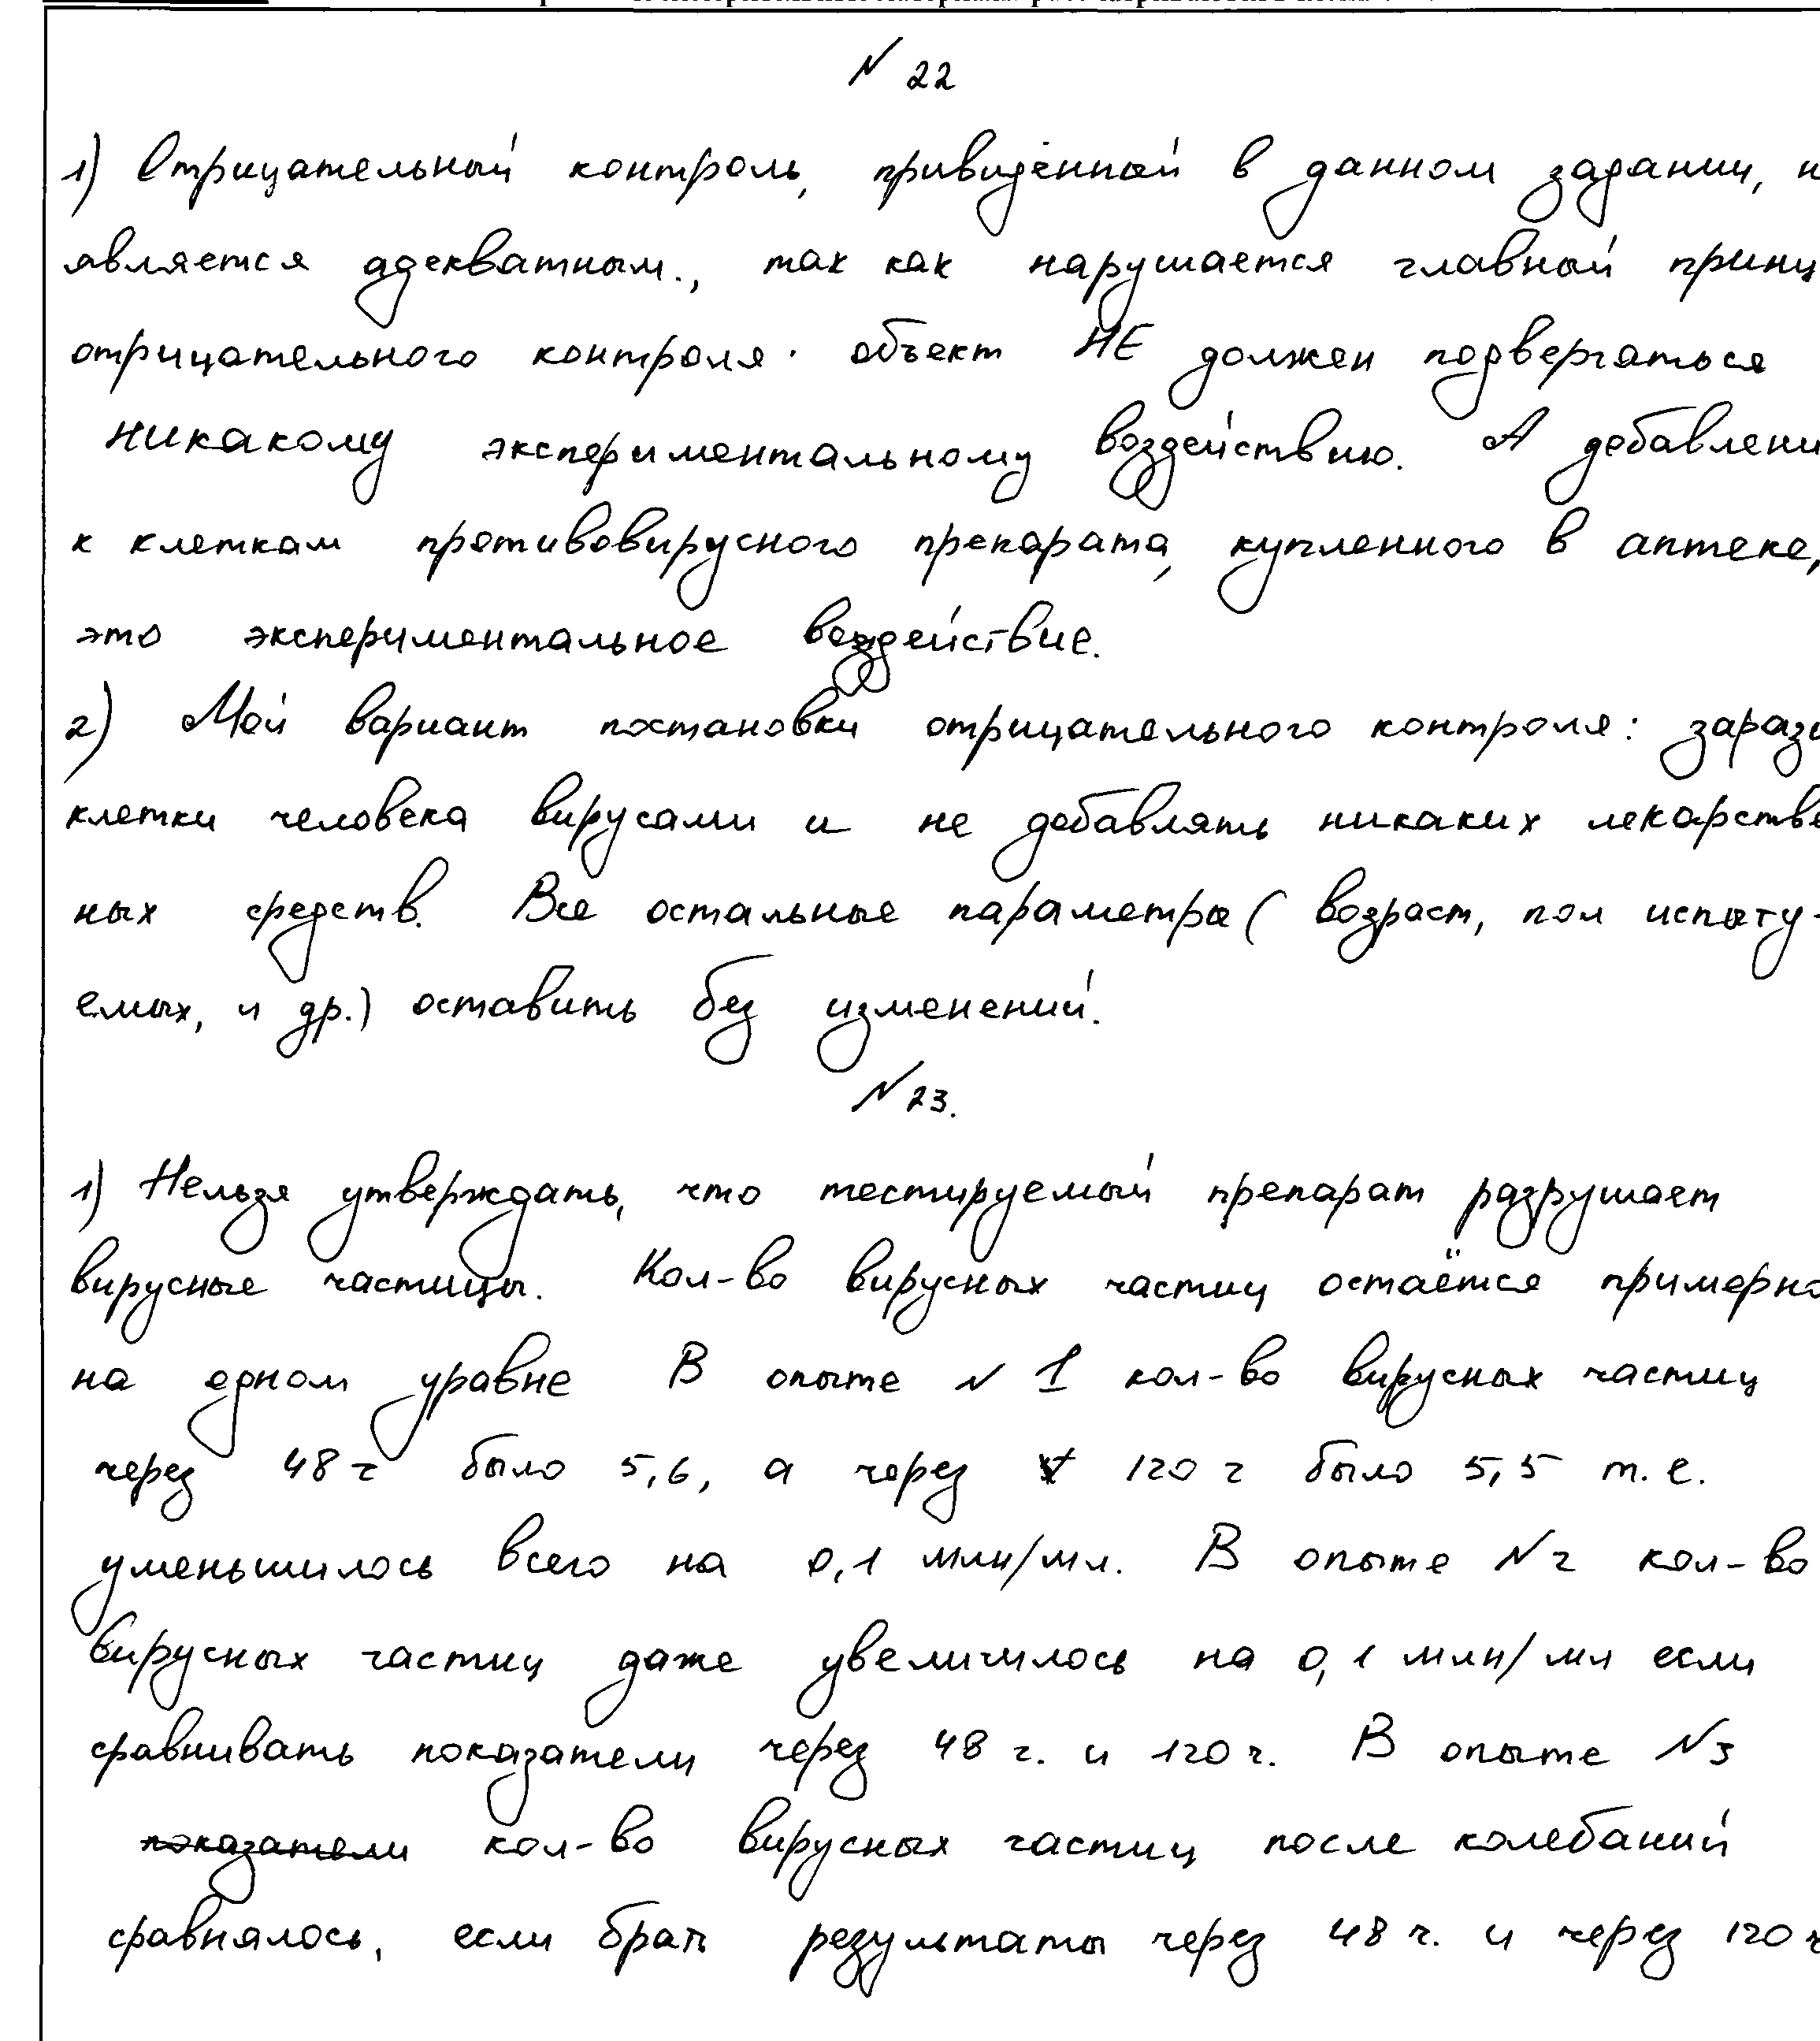 N 22
1) Отрицательный контроль, привидённый в данном задании, н
является адекватным., так как нарушается главный принц
отрицательного контроля: объект НЕ должен подвергаться
никакому экспериментальному воздействию. А добавлени
к клеткам противовирусного препарата, купленного в аптеке,
это экспериментальное воздействие.
2) Мой вариант постановки отрицательного контроля: зарази
клетки человека вирусами и не добавлять никаких лекарстве
ных средств. Все остальные параметры ( возраст, пол испыту-
емых, и др.) оставить без изменений.
N 23.
1) Нельзя утверждать, что тестируемый препарат разрушает
вирусные частицы. Кол-во вирусных частиц остаётся примерно
на одном уравне В опыте N 1 кол-во вирусных частиц
через 48 ч было 5,6, а через 120 ч было 5,5 т.е.
уменьшилось всего на 0,1 млн/мл. В опыте N2 кол-во
вирусных частиц даже увеличилось на 0,1 млн/мл если
сравнивать показатели через 48 ч. и 120 ч. В опыте N3
показатели кол-во вирусных частиц после колебаний
сравнялось, если брать результаты через 48 ч. и через 120 ч